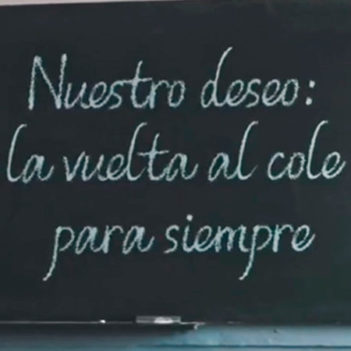 Nuestro deseo:
la vuelta al cole
para siempre